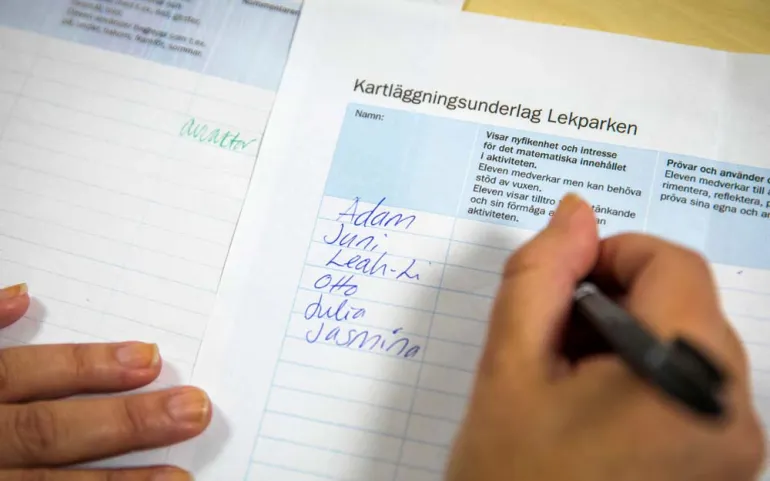 Kartläggningsunderlag Lekparken
Namn:
Visar nyfikenhet och intresse
för det matematiska innehållet
i aktiviteten.
Eleven medverkar men kan behöva
stöd av vuxen.
Eleven visar tilltro
tänkande
och sin förmåga
aktiviteten.
Prövar och använder
Eleven medverkar till
rimentera, reflektera,
pröva sina egna och
Adam
Juni
Leah-Li
Otto
Julia
Jasmina